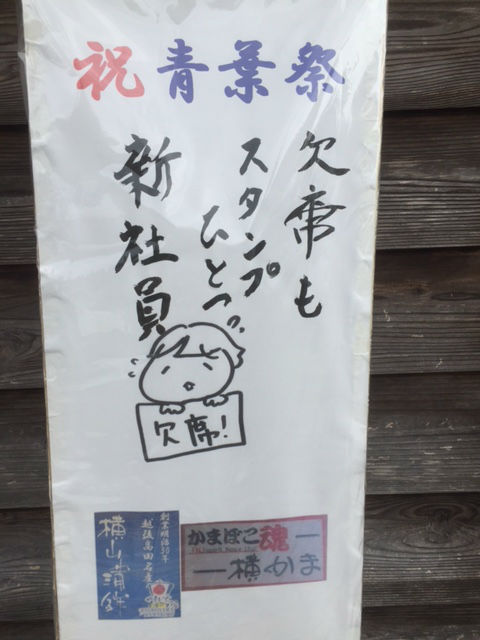 祝青葉祭
欠席も
スタンプ
ひとつ
新社員
欠席!
創業明治30年
越後高田名産
横山蒲鉾
かまぼこ魂
一横かま